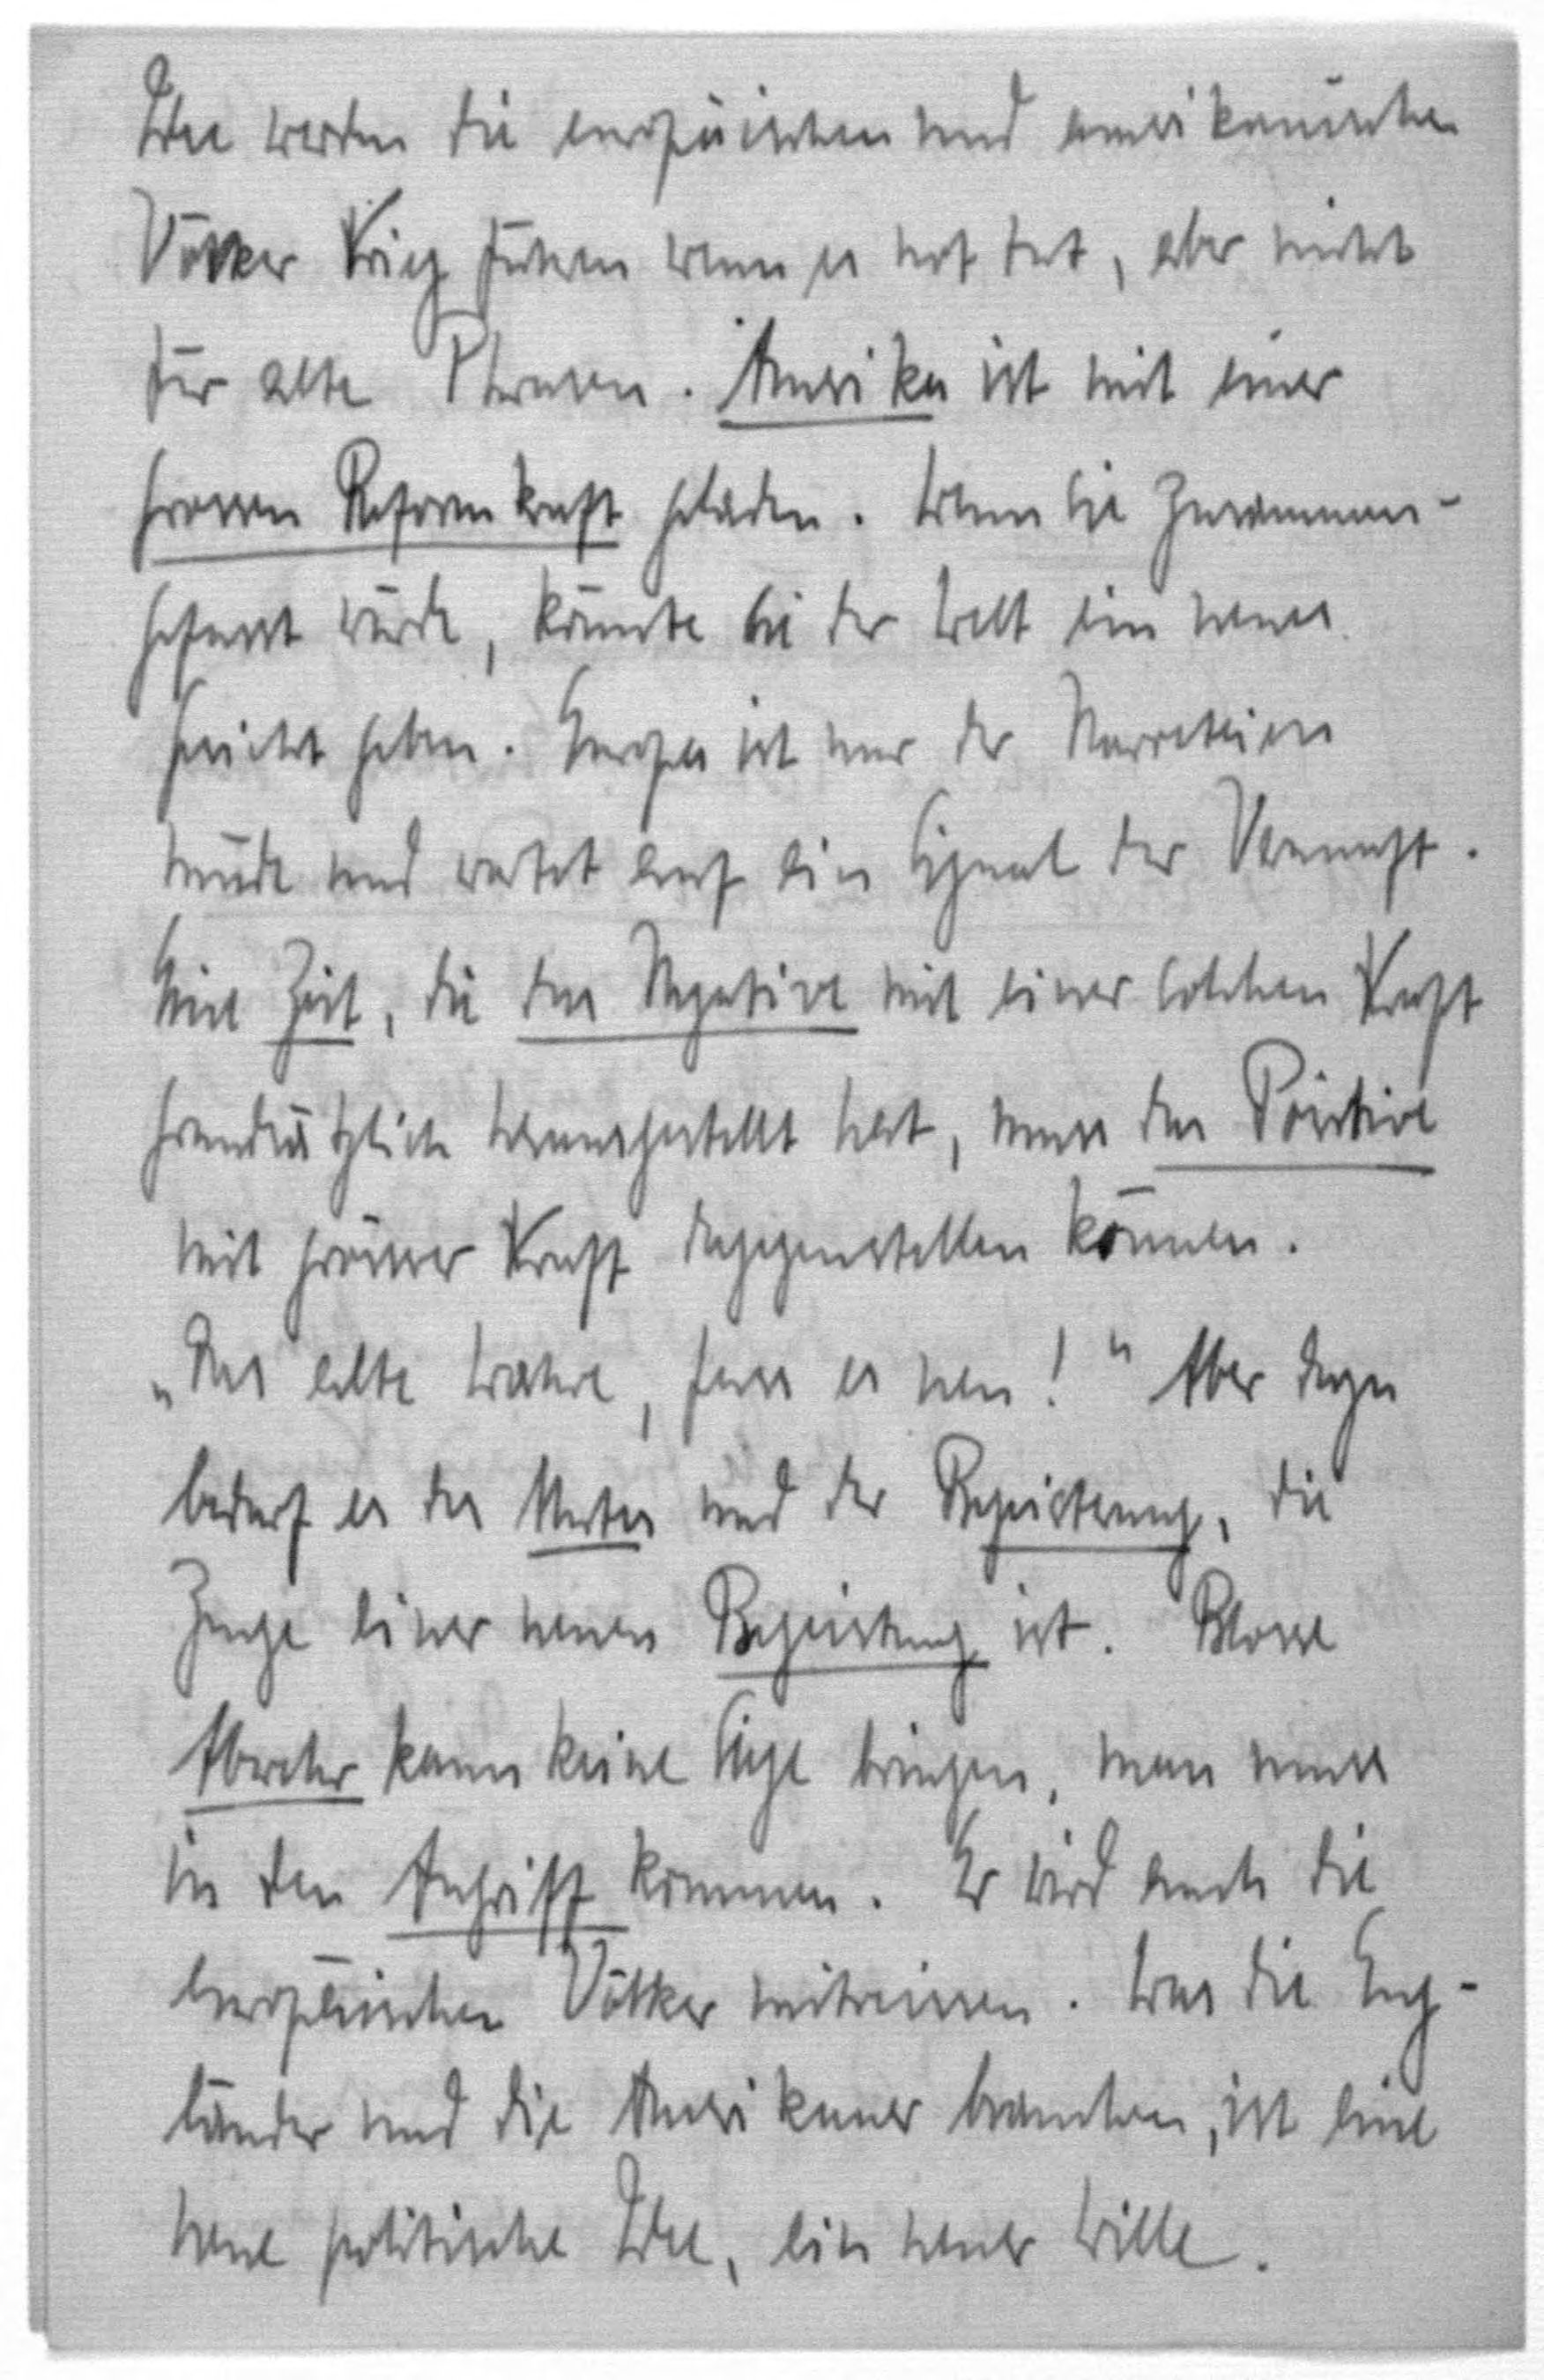 Idee werden die europäischen und amerikanischen
Völker Krieg führen wenn es not tut, aber nicht
für alte Phrasen. Amerika ist mit einer
grossen Reformkraft geladen. Wenn sie zusammen-
gefasst würde, könnte sie der Welt ein neues
Gesicht geben. Europa ist nur der Narreteien
müde und wartet auf ein Signal der Vernunft.
Eine Zeit, die das Negative mit einer solchen Kraft
grundsätzlich herausgestellt hat, muss das Positive
mit grösserer Kraft dagegenstellen können.
„Das alte Wahre, fass es neu!" Aber dazu
bedarf es des Mutes und der Begeisterung, die
Zeuge einer neuen Begeistung ist. Blosse
Abwehr kann keine Siege bringen, man muss
in den Angriff kommen. Er wird auch die
europäischen Völker mitreissen. Was die Eng-
länder und die Amerikaner brauchen, ist eine
neue politische Idee, ein neuer Wille.